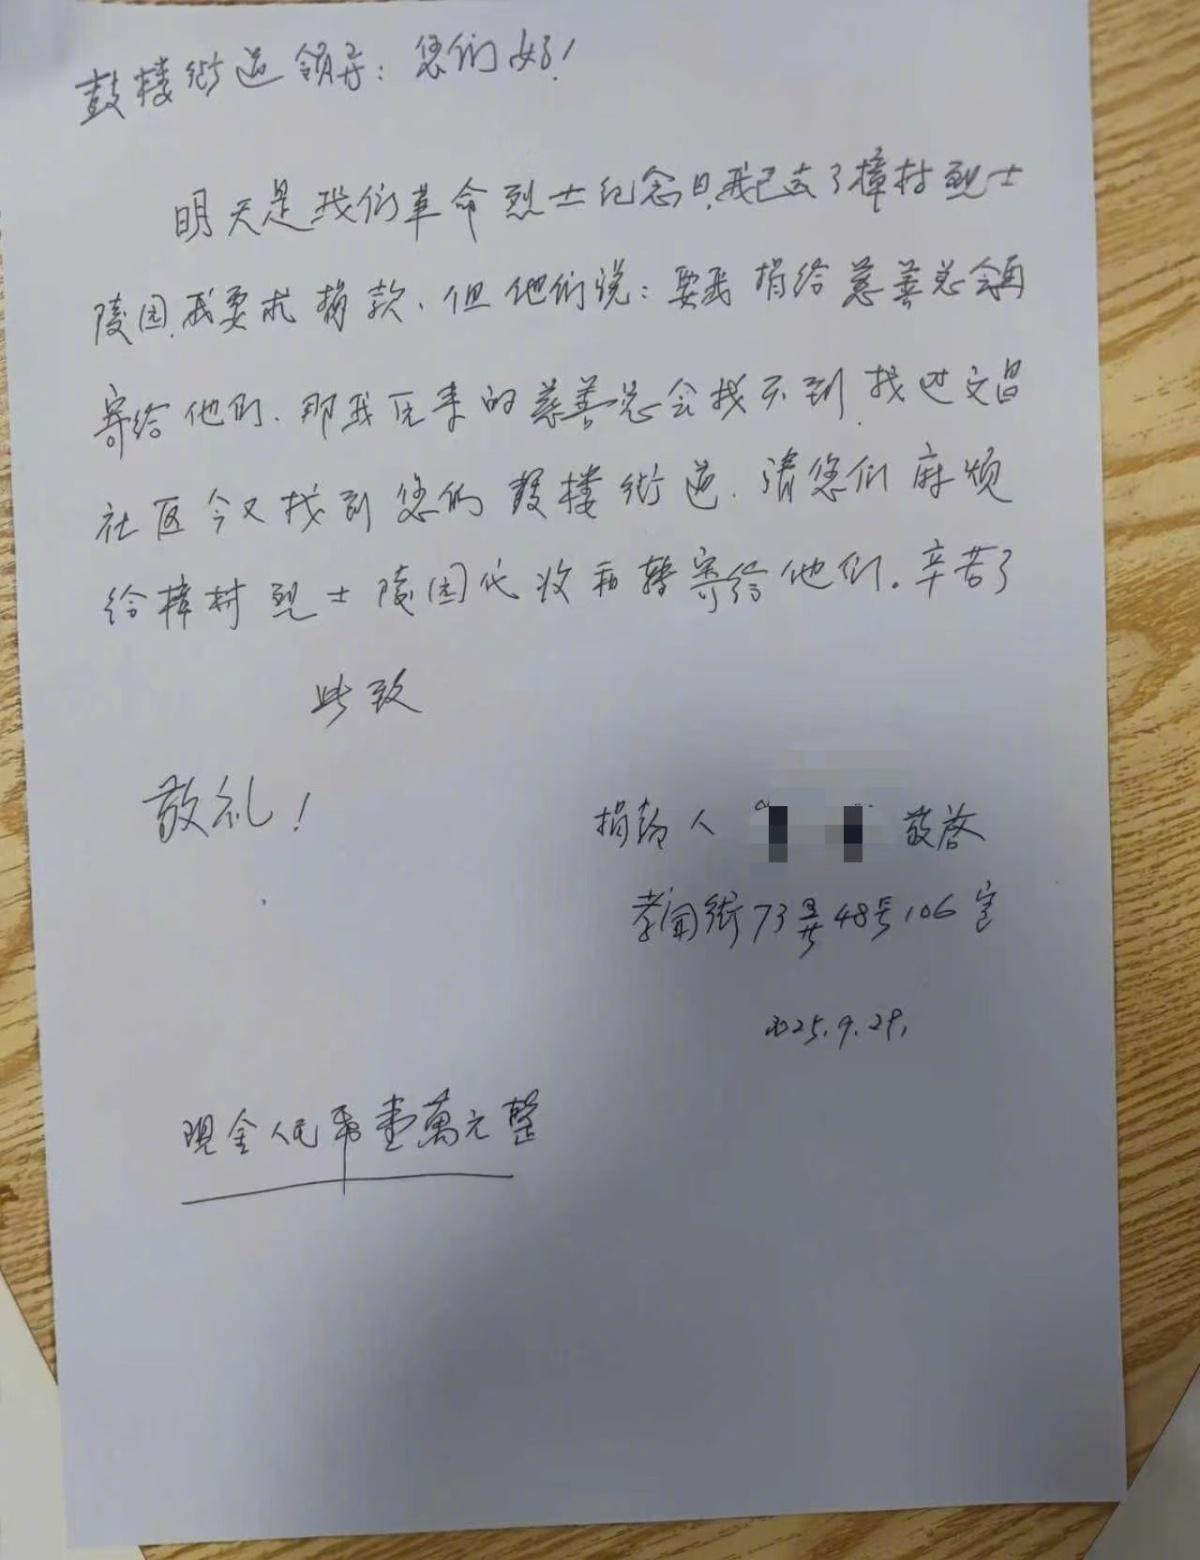 鼓楼街道领导：您们好！
明天是我们革命烈士纪念日，我已去了樟村烈士
陵园，我要求捐款、但他们说：要我捐给慈善总会再
寄给他们、那我原来的慈善总会找不到，找过文昌
社区今又找到您的鼓楼街道、请您们麻烦
给樟村烈士陵园代收和转寄给他们。辛苦了
此致
敬礼！
捐款人 敬启
孝闻街73弄48号106室
2025.9.29.
现金人民币壹萬元整